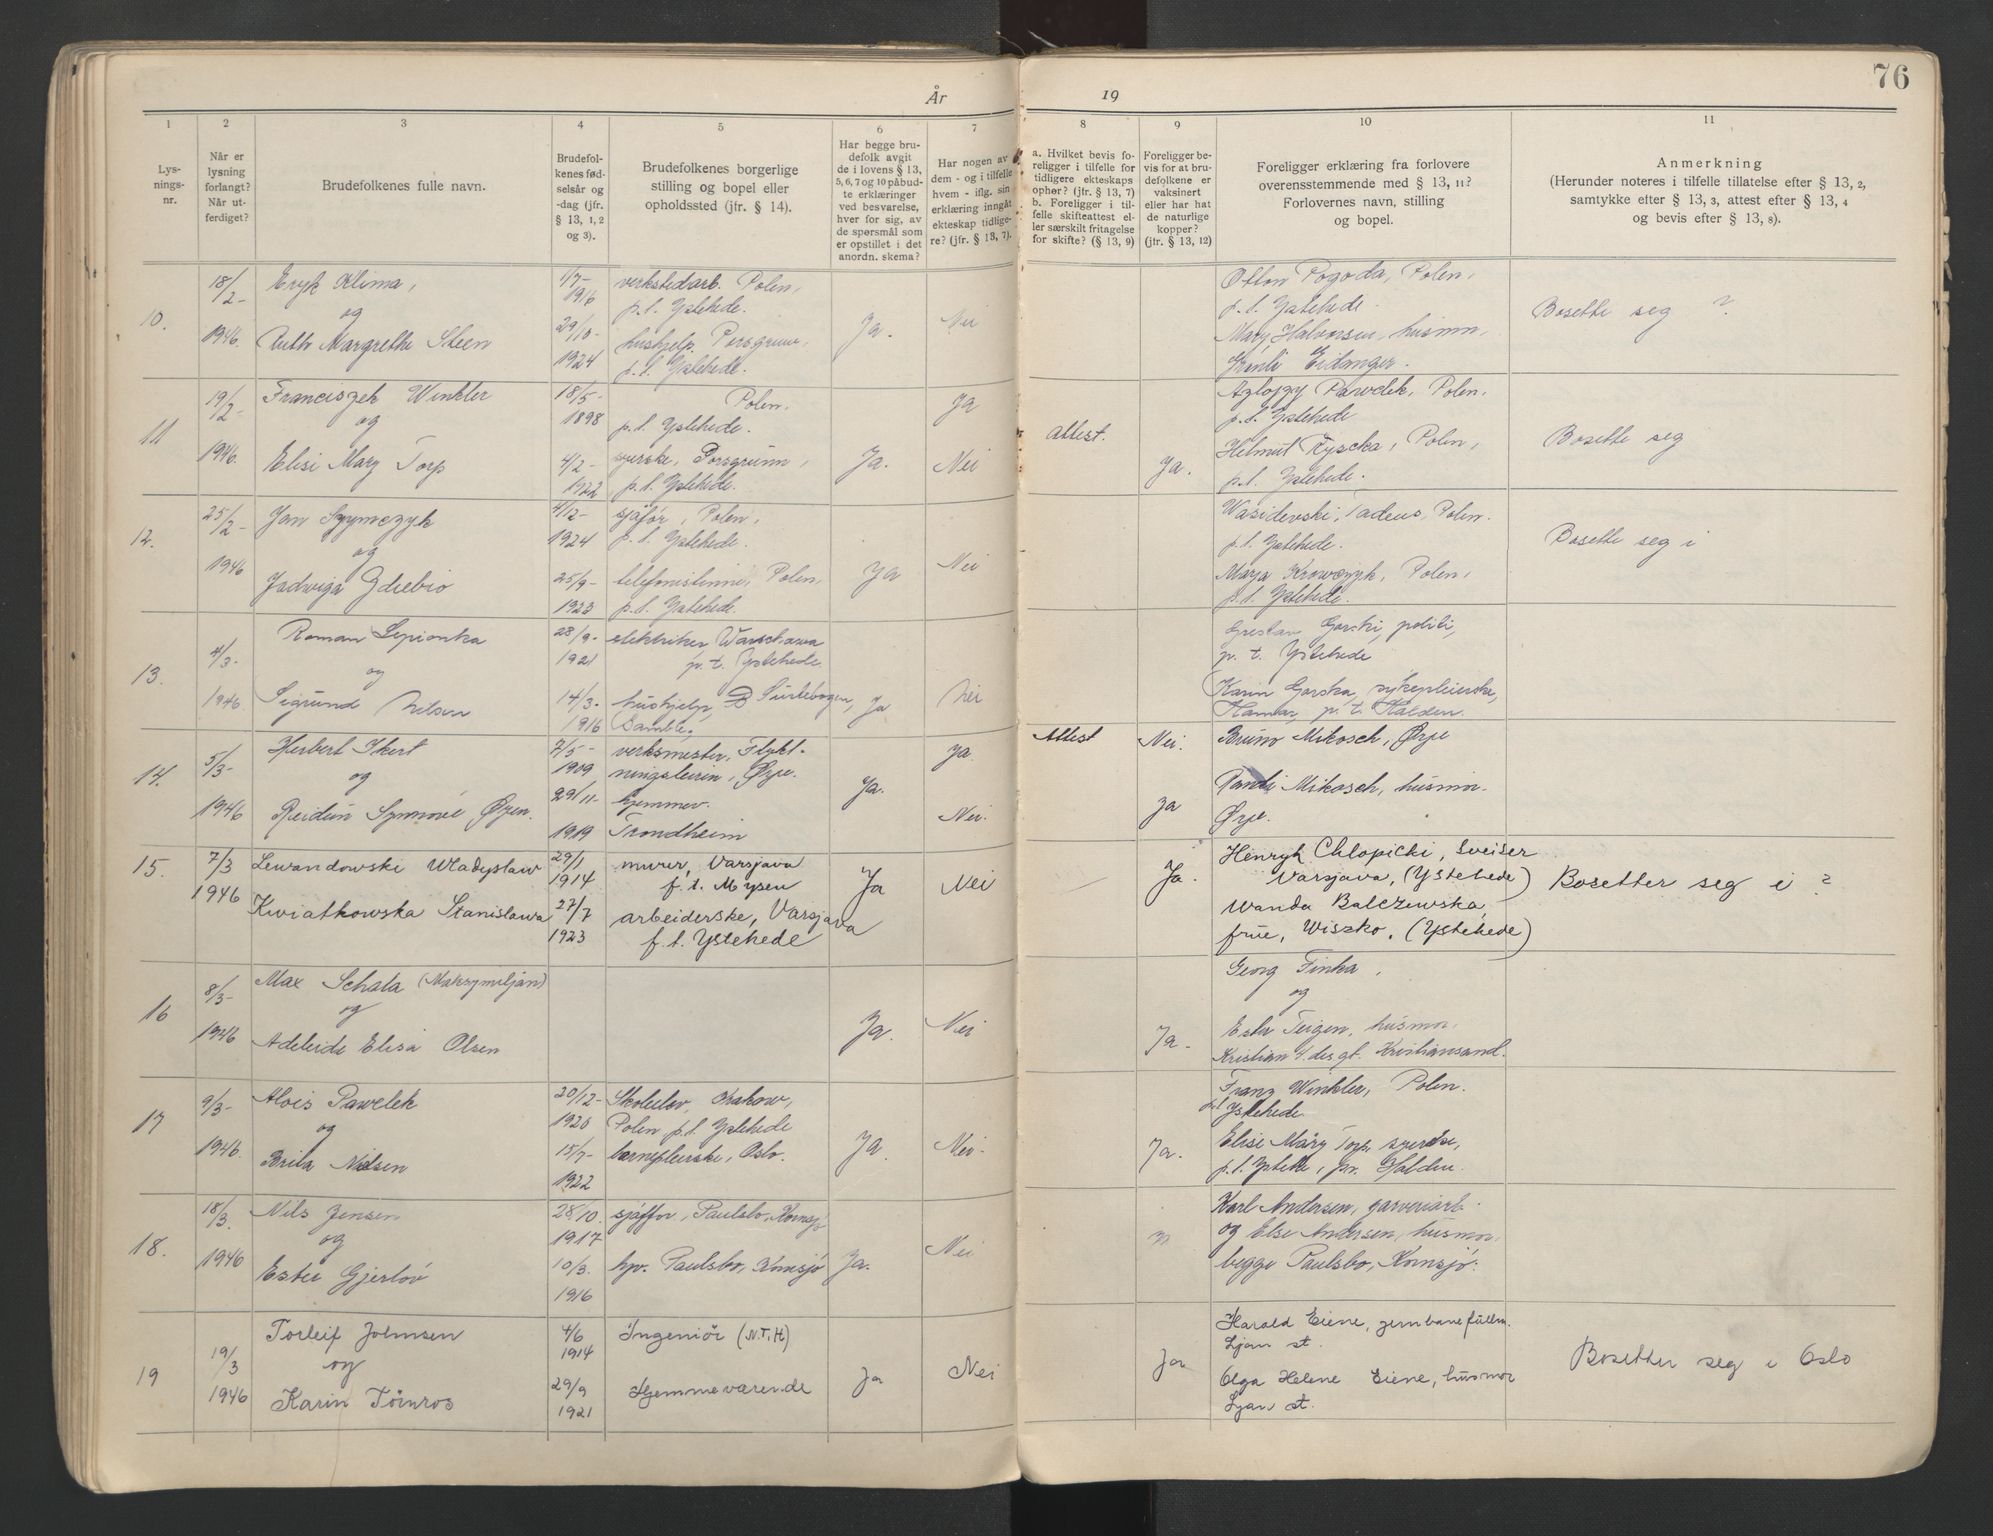 År 19
76
1
2
3
4
5
6
7
8
9
10
11
Lys-
nings-
nr.
Når er
lysning
forlangt?
Når ut-
ferdiget?
Brudefolkenes fulle navn.
Brudefol-
kenes fød-
selsår og
-dag (jfr.
§ 13, 1, 2
og 3).
Brudefolkenes borgerlige
stilling og bopel eller
opholdssted (jfr. § 14).
Har begge bru-
defolk avgit
de i lovens § 13,
5, 6, 7 og 10 påbud-
te erklæringer
ved besvarelse,
hver for sig, av
de spørsmål som
er opstillet i det
anordn. skema?
Har nogen av
dem - og i tilfelle
hvem - iflg. sin
erklæring inngåt
ekteskap tidlige-
re? (jfr. § 13, 7).
a. Hvilket bevis fo-
religger i tilfelle for
tidligere ekteskaps
ophør? (jfr. § 13, 7)
b. Foreligger i til-
felle skifteattest el-
ler særskilt fritagelse
for skifte? (§ 13, 9)
Foreligger be-
vis for at bru-
defolkene er
vaksinert
eller har hat
de naturlige
kopper?
(jfr. § 13, 12)
Foreligger erklæring fra forlovere
overensstemmende med § 13, 11?
Forlovernes navn, stilling
og bopel.
Anmerkning
(Herunder noteres i tilfelle tillatelse efter § 13, 2,
samtykke efter § 13, 3, attest efter § 13, 4
og bevis efter § 13, 8).
10.
18/2-
1946.
Eryk Klima,
og
Ruth Margrethe Steen
1/7-
1916
29/10-
1924
verkstedarb. Polen,
p.t. Ystehede.
hushjelp, Porsgrunn,
p.t. Ystehede.
Ja.
Nei
Otton Pogoda, Polen,
p.t. Ystehede.
Mary Halvorsen, husmor,
Eidanger.
Bosette seg ?
11
19/2-
1946.
Franciszek Winkler
og
Elisi Mary Torp
18/5-
1898
4/2-
1922
Polen.
p.t. Ystehede.
syerske, Porsgrunn,
p.t. Ystehede.
Ja.
Ja
Nei
Attest.
Ja.
Pawelek, Polen.
p.t. Ystehede
Helmut Kyscka, Polen,
p.t. Ystehede.
Bosette seg
12.
25/2-
1946
Jan Szymczyk
og
Jadwiga Gdiebio
4/12-
1924
25/9-
1923
sjåfør, Polen,
p.t. Ystehede.
telefonistinne, Polen,
p.t. Ystehede.
Ja
Nei
Wasidevski, Tadeus, Polen.
p.t. Ystehede.
Marja Krowczyk, Polen,
p.t. Ystehede.
Bosette seg i
13.
4/3-
1946.
Roman Lepionka
og
Sigrund Nilsen
28/9-
1921
14/3-
1916
elektriker Warschawa
p.t. Ystehede
hushjelp, Surtebogen,
Bamble,
Ja
Nei
Gorski, politi,
p. t. Ystehede
Karin Gorska, sykepleierske,
Hamar, p. t. Halden.
14.
5/3-
1946
Herbert Ikert
og
Reidun Synnøve Øyen.
7/5-
1909
29/11-
1919
verksmester, Flykt-
ningsleirin, Ørje.
hjemmev.
Trondheim
Ja.
Ja.
Nei.
Attest
Nei.
Ja
Bruno Mikosch, Ørje
Randi Mikosch, husmor.
Ørje.
15.
7/3
1946
Lewandowski Wladyslaw
Kwiatkowska Stanislawa
29/1
1914
27/7
1923
murer, Varsjava
f. t. Mysen
arbeiderske, Varsjava
f. t. Ystehede
Ja
Nei
Ja.
Henryk Chlopicki, Sveiser
Varsjava, (Ystehede)
Wanda Balczewska,
frue, Wiszko, (Ystehede)
Bosetter seg i ?
16
8/3-
1946
Max Schala (Maksymiljan)
og
Adeleide Elisa Olsen
Ja.
Nei
Ja.
Georg Finka,
og
Ester Teigen, husmor.
Kristian 4.des gt. Kristiansand.
17
9/3-
1946.
Alois Pawelek
og
Brita Nielsen
20/12-
1920
15/7-
1922
Skoleelev, Krakow,
Polen, p.t. Ystehede
barnepleierske, Oslo.
Ja.
Nei.
Ja.
Franz Winkler, Polen.
p.t. Ystehede.
Elise Mary Torp, syerske,
p.t. Ystehe, pr. Halden.
18.
18/3.
1946
Nils Jensen
og
Ester Gjerløv
28/10.
1917
10/3.
1916
sjåffør, Paulsbo, Kornsjø
hpr. Paulsbo, Kornsjø
Ja.
Nei
Karl Andersen, garveriarb.
og Else Andersen, husmor,
begge Paulsbo, Kornsjø.
19
19/3
1946
Torleif Johnsen
og
Karin Tömros
4/6
1914
29/9
1921
Ingeniör (N.T.H)
Hjemmeværende
Ja
Nei
Ja
Harald Eiene, jernbanefullm.
Ljan st.
Olga Helene Eiene, husmor
Ljan st.
Bosetter seg i Oslo